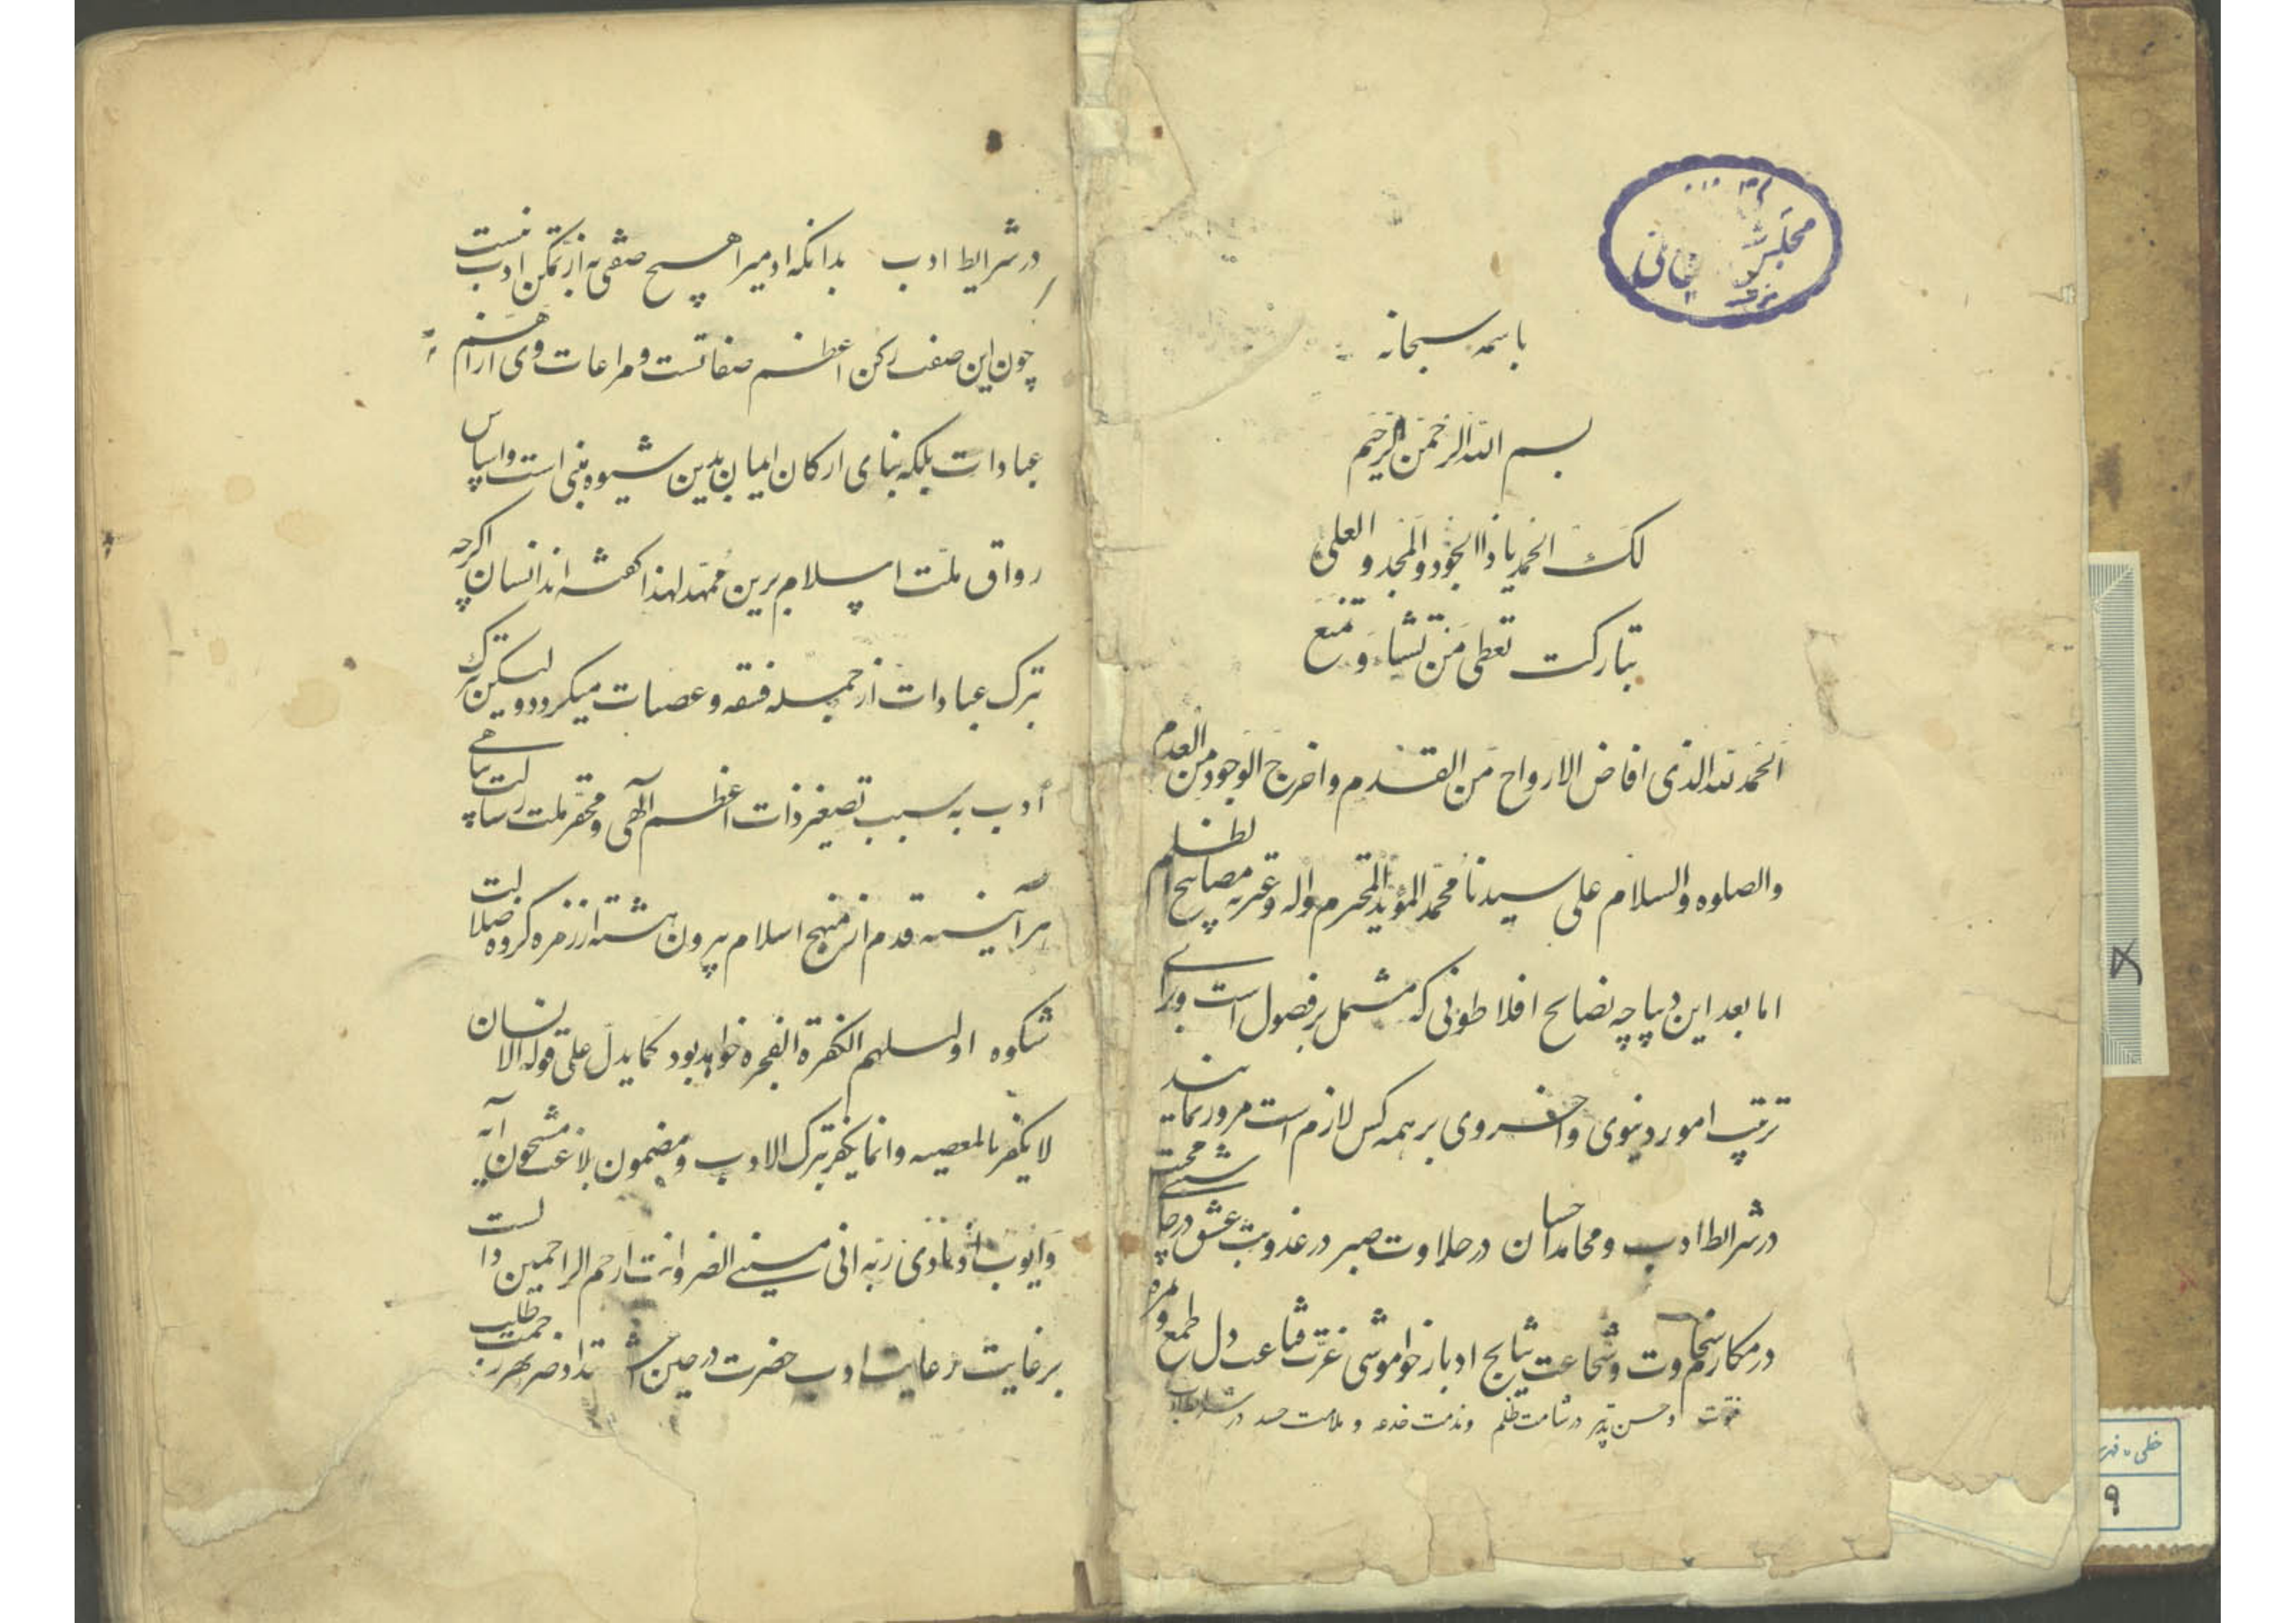 باسمه سبحانه
بسم الله الرحمن الرحیم
لک الحمد یا ذا الجود و المجد و العلی
تبارکت تعطی من تشاء و تمنع
الحمد لله الذی افاض الارواح من القدم و اخرج الوجود من العدم
والصلوه والسلام علی سیدنا محمد المؤید المحترم واله وعترته مصابیح الظلم
اما بعد این دیباچه نصایح افلاطونی که مشتمل بر فصول است و برای
ترتیب امور دنیوی و اخروی بر همه کس لازم است مرور نمایند
در شرایط ادب و محامد احسان در حلاوت صبر در عذوبت عشق در چاشنی محبت
در مکارم سخاوت و شجاعت نتایج ادبار خواموشی عزت قناعت دل طمع و
و حسن تدبر در شامت ظلم و مذمت خدعه و ملامت حسد در
مجلس شورای ملی
خطی - فهر
۹
در شرایط ادب بدانکه ادمیرا هیچ صفتی به از تمکن ادب نیست
چون این صفت رکن اعظم صفاتست و مراعات وی از اهم
عبادات بلکه بنای ارکان ایمان بدین شیوه مبنی است و اساس
رواق ملت اسلام برین ممهد لهذا گفته اند انسان اگرچه
بترک عبادات از جمله فسقه و عصات میگردد و لیکن ترک
ادب به سبب تصغیر ذات اعظم آلهی و محقر ملت رسالت پناهی
هر آینه قدم از منهج اسلام بیرون هشته از زمره گروه ضلالت
شکوه اولئک هم الکفرة الفجره خواهد بود کما یدل علی قوله الانسان
لا یکفر بالمعصیه وانما یکفر بترک الادب و مضمون بلاغت مشحون آیه
وایوب اذ نادی ربه انی مسنی الضر وانت ارحم الراحمین
بر غایت رعایت ادب حضرت در حین